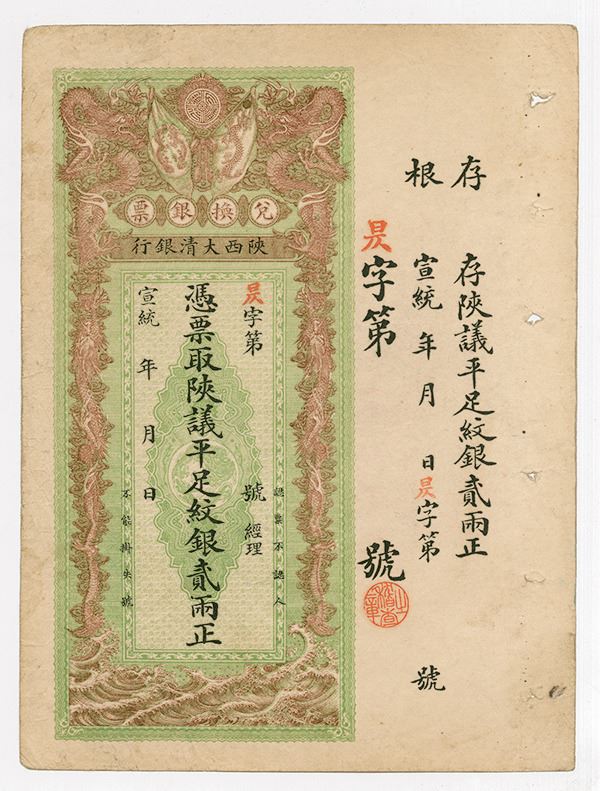 存根
存陝議平足紋銀貳兩正
宣統 年 月 日 昃字第 號
昃字第 號
兌換銀票
陝西大清銀行
昃字第 號 經理
憑票取陝議平足紋銀貳兩正
宣統 年 月 日
認票不認人
不能掛失號